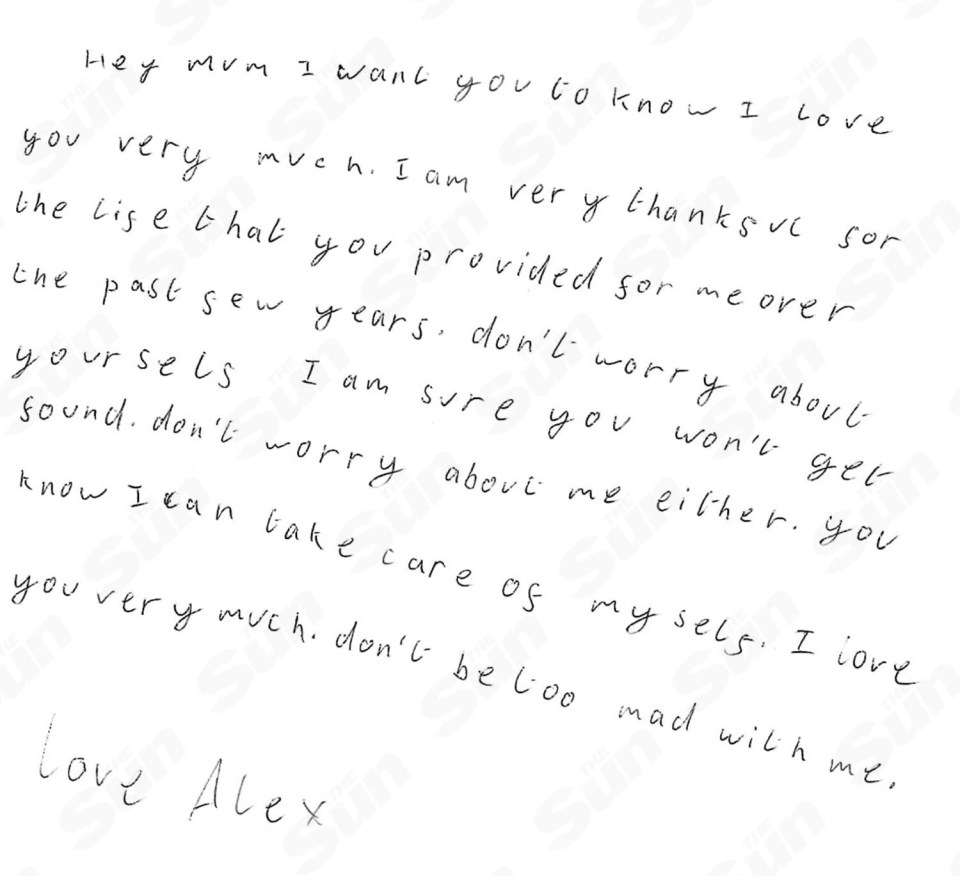 Hey mum I want you to know I love
you very much. I am very thankful for
the life that you provided for me over
the past few years. don't worry about
yourself I am sure you won't get
found. don't worry about me either. you
know I can take care of myself. I love
you very much. don't be too mad with me.
Love Alex
THE Sun